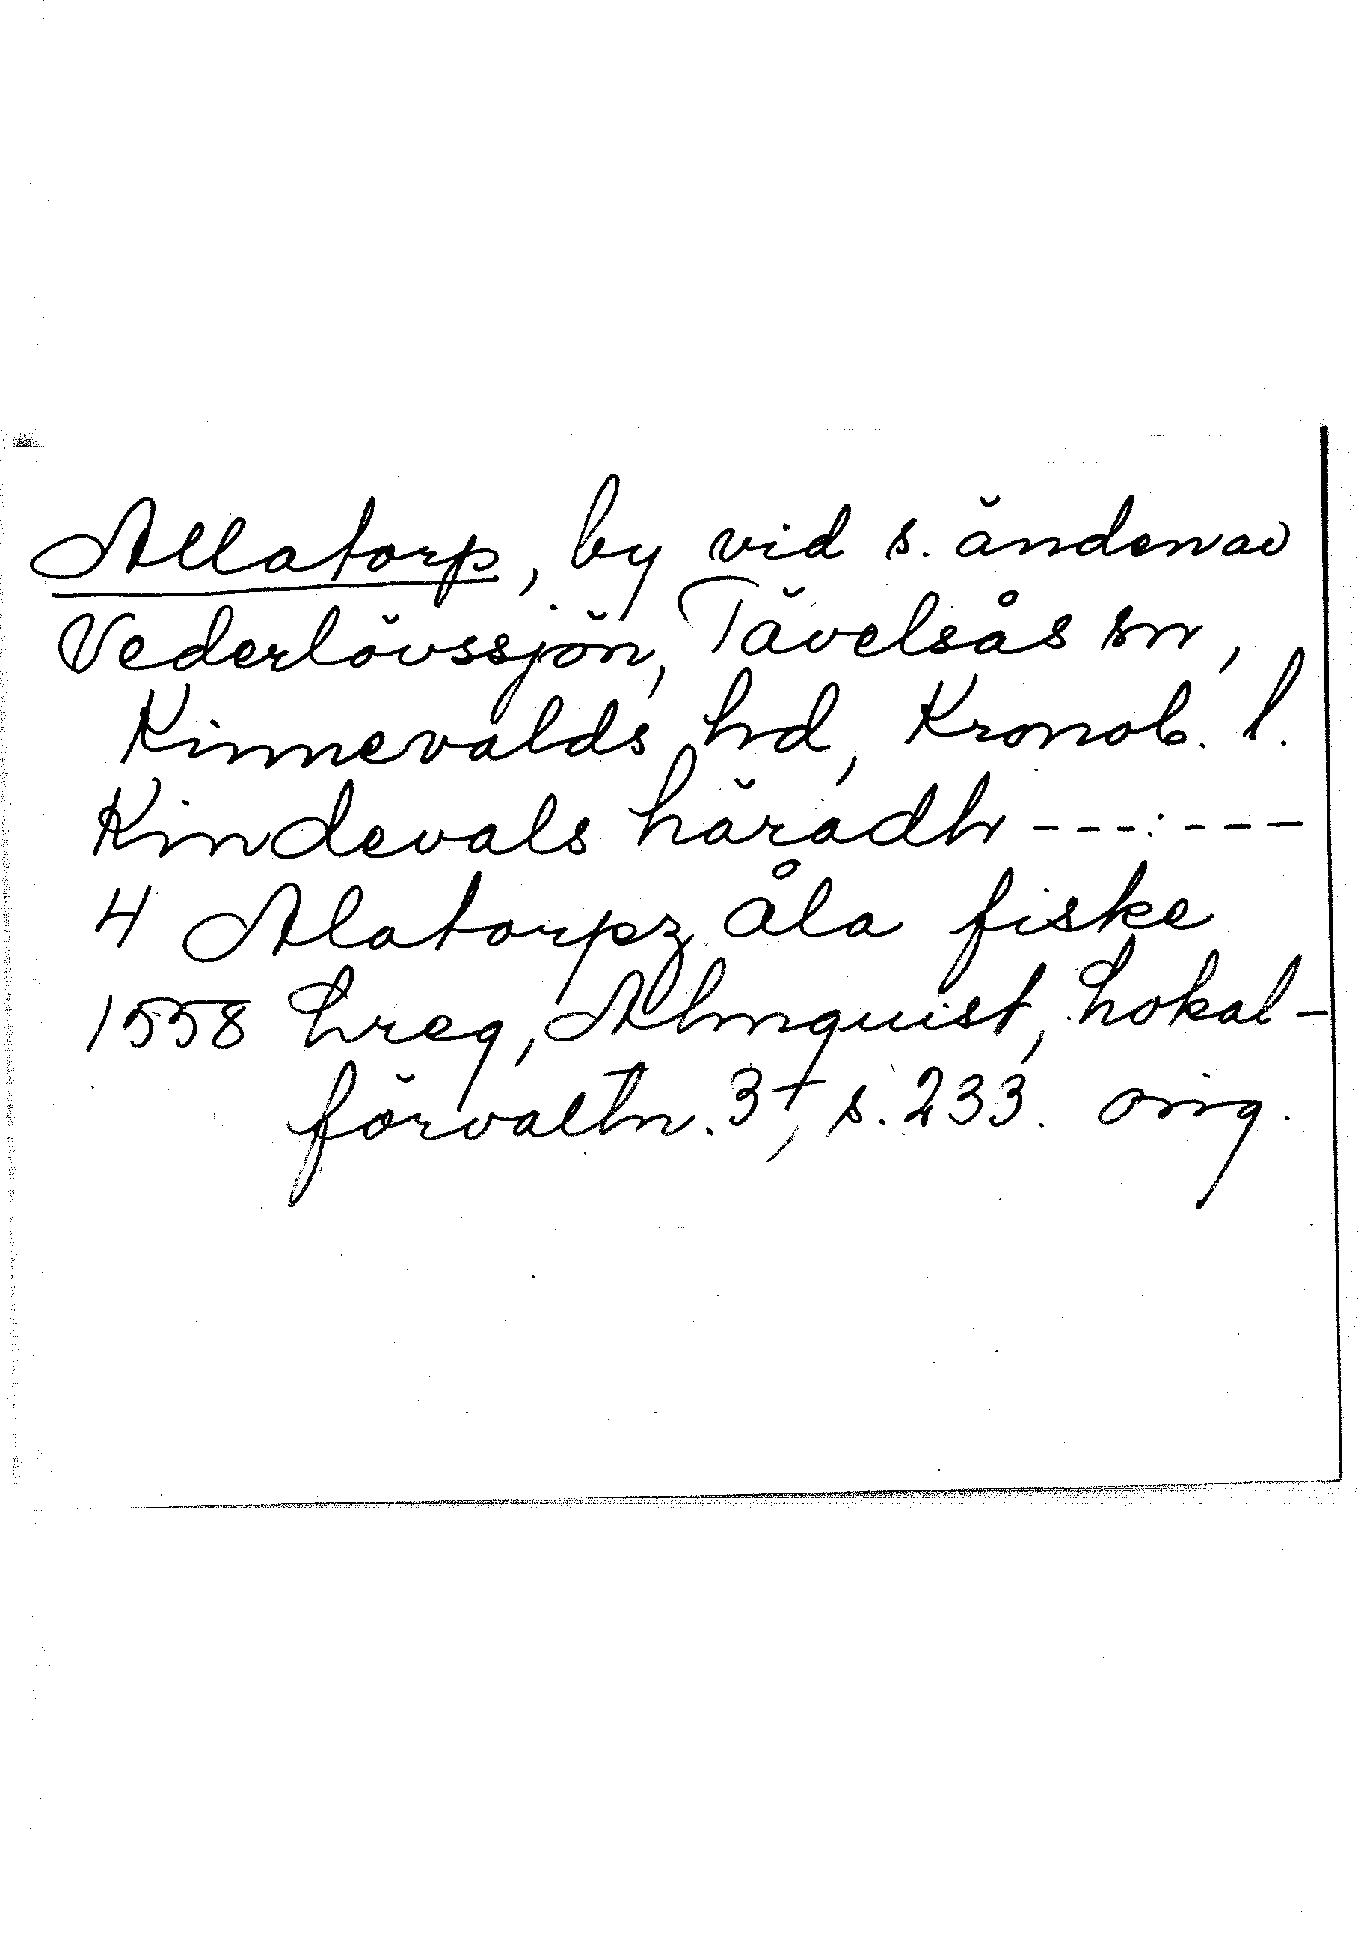 Allatorp, by vid s. änden av
Vederlövssjön, Tävelsås sn,
Kinnevalds hd, Kronob. l.
Kindevals häradh ---:---
4 Alatorpz åla fiske
1558 Lreg, Almquist, Lokal-
förvaltn. 3+, s. 233. orig.